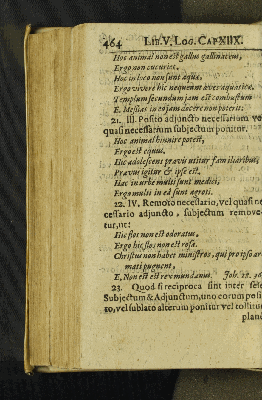 464 LIB. V. LOG. CAP. XIIX.
Hoc animal non est gallus gallinaceus,
Ergo non cucurit.
Hic in loco non sunt aquæ,
Ergo vivere hic nequeunt aves aquaticæ.
Templum secundum jam est combustum
E. Messias in eo jam docere non poterit.
21. III. Posito adjuncto necessarium vel
quasi necessarium subjectum ponitur.
Hoc animal hinnire potest,
Ergo est equus.
Hic adolescens pravis utitur familiaribus,
Pravus igitur & ipse est.
Hac in urbe multi sunt medici,
Ergo multi in ea sunt ægroti.
22. IV. Remoto necessario, vel quasi ne-
cessario adjuncto, subjectum remove-
tur, ut:
Hic flos non est odoratus,
Ergo hic flos non est rosa.
Christus non habet ministros, qui pro ipso ar-
mati pugnent,
E. Non est rex mundanus. Joh. 18. 36
23. Quod si reciproca sint inter sese
Subjectum & Adjunctum, uno eorum posi-
to, vel sublato alterum ponitur vel tollitur
plane